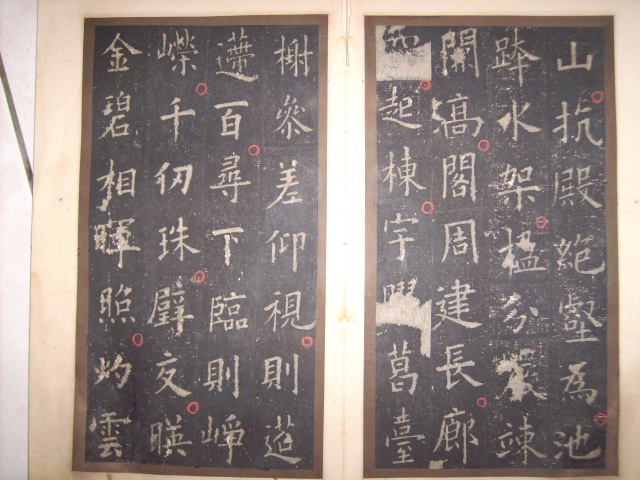 山抗殿絶壑為池
跨水架楹分巖竦
闕高閣周建長廊
四起棟宇膠葛臺
榭参差仰視則迢
遰百尋下臨則崢
嶸千仞珠璧交暎
金碧相暉照灼雲